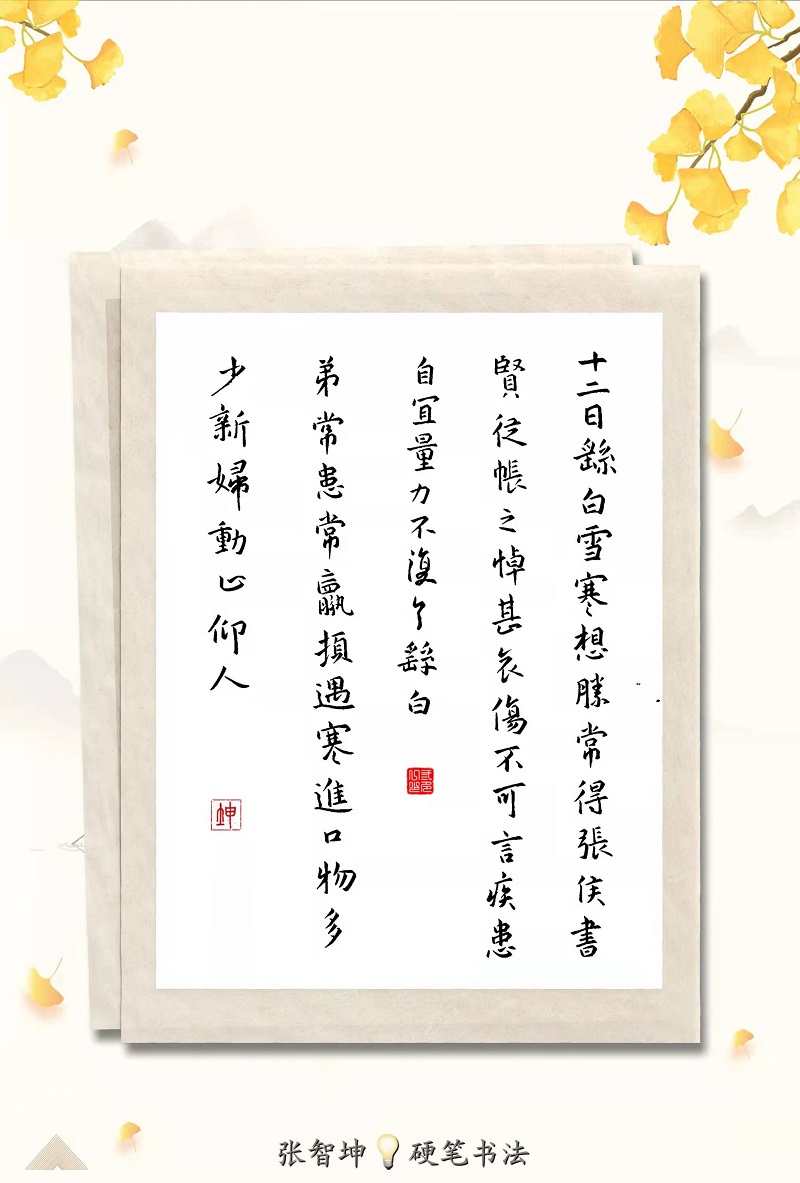 十二日繇白雪寒想勝常得張侯書
賢從帳之悼甚哀傷不可言疾患
自宜量力不復具繇白
弟常患常羸頓遇寒進口物多
少新婦動止仰人
坤
张智坤 硬笔书法